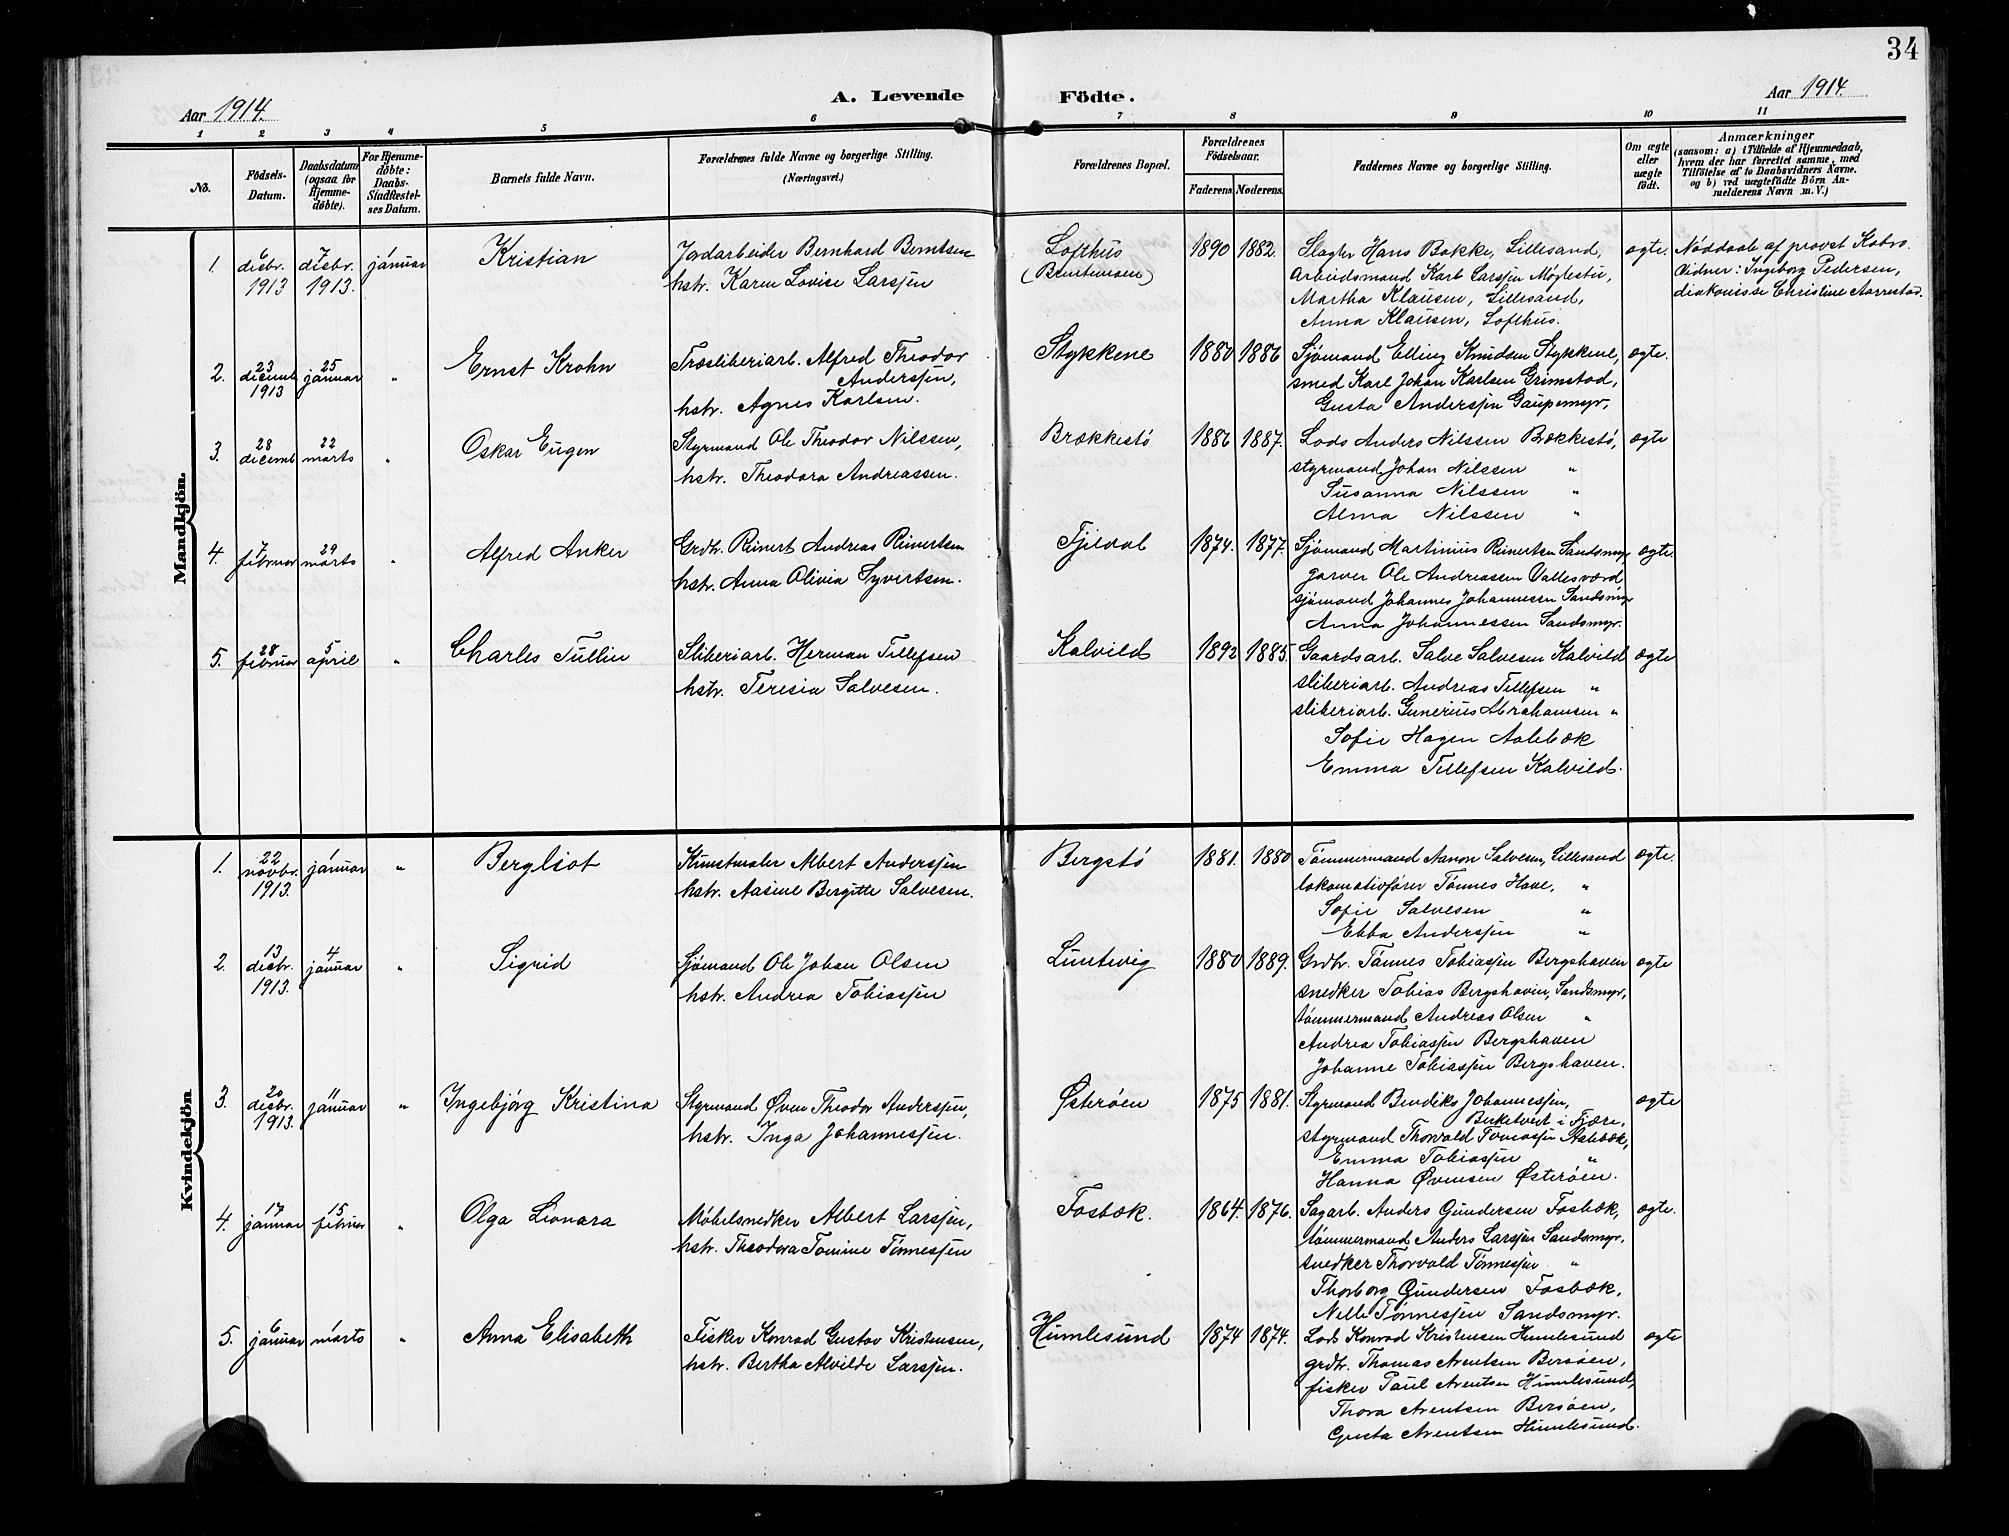 34
Aar 1914.
A. Levende
Födte.
Aar 1914.
1 2 3 4 5 6 7 8 9 10 11
No.
Födsels-
Datum.
Daabsdatum
(ogsaa for
Hjemme-
døbte).
For Hjemme-
døbte:
Daabs-
Stadfæstel-
ses Datum.
Barnets fulde Navn.
Forældrenes fulde Navne og borgerlige Stilling.
(Næringsvei.)
Forældrenes Bopæl.
Forældrenes
Födselsaar.
Faderens.
Moderens.
Faddernes Navne og borgerlige Stilling.
Om ægte
eller
uægte
født.
Anmærkninger
(saasom: a) i Tilfælde af Hjemmedaab,
hvem der har forrettet samme, med
Tilföielse af to Daabsvidners Navne.
og b) ved uægtefödte Börn An-
melderens Navn m. V.)
Mandkjön.
1.
6
decbr.
1913
7
decbr.
1913.
1
januar
Kristian
Jordarbeider Bernhard Berntsen
hstr. Karen Lovise Larssen
Lofthus
1890 1882.
Slagter Hans Bakke, Lillesand,
Arbeidsmand Karl Larssen Møglestu,
Martha Klausen, Lillesand,
Anna Klausen, Lofthus.
ægte.
Nøddaab af provst Kobro.
Vidner: Ingeborg Pedersen,
diakonisse Christine Aarrestad.
2.
23
decemb
1913
25
januar
"
Ernst Krohn
Træsliberiarb. Alfred Theodor
Anderssen,
hstr. Agnes Karlsen.
Stykkene
1880 1886
Sjømand Elling Knudsen Stykkene,
smed Karl Johan Karlsen Grimstad,
Gusta Anderssen Gaupemyr,
ægte.
3.
28
decemb
22
marts
"
Oskar Eugen
Styrmand Ole Theodor Nilssen,
hstr. Theodora Andreassen.
Brækkestø
1886 1887.
Lods Anders Nilssen Brækkestø,
styrmand Johan Nilssen "
Susanna Nilssen "
Alma Nilssen "
ægte
4.
7
februar
29
marts
"
Alfred Anker
Grdbr. Reinert Andreas Reinertsen
hstr. Anna Olivia Syvertsen.
Tjileval
1874. 1877.
Sjømand Martinius Reinertsen Sandsmyr
garver Ole Andreassen Vallesværd
sjømand Johannes Johannessen Sandsmyr
Anna Johannessen Sandsmyr.
ægte.
5.
28
februar
5
april
"
Charles Tullin
Sliberiarb. Herman Tellefsen
hstr. Teresia Salvesen.
Kalvild
1892 1885.
Gaardsarb. Salve Salvesen Kalvild
sliberiarb. Andreas Tellefsen "
sliberiarb. Gunerius Abrahamsen "
Sofie Hagen Aalebæk
Emma Tellefsen Kalvild.
ægte
Kvindekjön
1.
22
novbr.
1913.
1
januar
"
Bergliot
Kunstmaler Albert Anderssen
hstr. Aasine Bergitte Salvesen.
Bergstø
1881. 1880
Tømmermand Aanon Salvesen, Lillesand
lokomotivfører Tønnes Have, "
Sofie Salvesen "
Ebba Anderssen "
ægte.
2.
13
decbr.
1913.
4
januar
"
Sigrid
Sjømand Ole Johan Olsen
hstr. Andrea Tobiassen
Luntevig
1880 1889.
Grdbr. Tønnes Tobiassen Bergshaven
snedker Tobias Bergshaven, Sandsmyr,
tømmermand Andreas Olsen "
Andrea Tobiassen Bergshaven
Johanne Tobiassen Bergshaven.
ægte
3.
20
decbr.
1913.
11
januar
"
Ingebjørg Kristina
Styrmand Øven Theodor Anderssen,
hstr. Inga Johannessen.
Østerøen
1875 1881.
Styrmand Bendiks Johannessen,
Birketveit i Fjære,
styrmand Thorvald Tobiassen Aalebæk,
Emma Tobiassen "
Hanna Øvensen Østerøen.
ægte
4.
17
januar
15
februar
"
Olga Leonara
Møbelsnedker Albert Larssen,
hstr. Theodora Tomine Tønnessen
Fosbæk.
1864. 1876.
Sagarb. Anders Gundersen Fosbæk,
tømmermand Anders Larssen Sandsmyr,
snedker Thorvald Tønnessen "
Thorborg Gundersen Fosbæk,
Nelle Tønnessen Sandsmyr.
ægte.
5.
6
januar
1
marts
"
Anna Elisabeth
Fisker Konrad Gustav Kristensen,
hstr. Bertha Alvilde Larssen.
Humlesund
1874 1874.
Lods Konrad Kristensen Humlesund
grdbr. Thomas Arentsen Bersøen,
fisker Paul Arentsen Humlesund,
Thora Arentsen Bersøen,
Gusta Arentsen Humlesund.
ægte